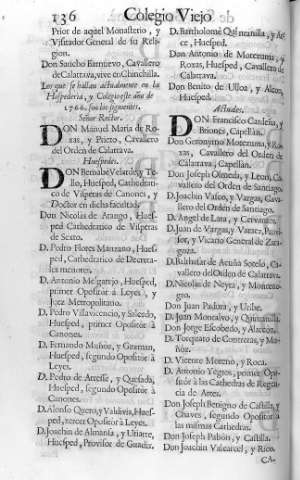 136 Colegio Viejo
Prior de aquel Monasterio, y
Visitador General de su Religion.
Don Sancho Barnuevo, Cavallero
de Calatrava, vive en Chinchilla.
Los que se hallan actualmente en la
Hospederia, y Colegio este año de
son los siguientes.
Señor Rector.
DON Manuel Maria de Roxas,
y Prieto, Cavallero
del Orden de Calatrava.
Huespedes.
DON Bernabe Velarde, y Tello,
Huesped, Cathedratico
de Visperas de Canones, y
Doctor en dicha facultad.
Don Nicolas de Arango, Huesped
Cathedratico de Visperas
de Sexto.
D. Pedro Flores Manzano, Huesped,
Cathedratico de Decretales
menores.
D. Antonio Melgarejo, Huesped,
primer Opositor à Leyes, y
Juez Metropolitano.
D. Pedro Villavicencio, y Salcedo,
Huesped, primer Opositor à
Canones.
D. Fernando Muñoz, y Guzman,
Huesped, segundo Opositor à
Leyes.
D. Pedro de y Quesada,
Huesped, segundo Opositor à
Canones.
D. Alonso Quero, y Valdivia, Huesped,
tercer Opositor à Leyes.
D. Joachin de Almansa, y Uriarte,
Huesped, Provisor de Guadix.
D. Bartholomè Quintanilla, y
Huesped.
Don Antonio de Motezuma, y
Roxas, Huesped, Cavallero de
Calatrava.
Don Benito de Ulloa, y
Huesped.
Actuales.
DON Francisco Candeña, y
Briones, Capellan.
Don Geronymo Motezuma, y Roxas,
Cavallero del Orden de
Calatrava.
Don Joseph Olmeda, y Leon, Cavallero
del Orden de Santiago.
D. Joachin Vasco, y Vargas, Cavallero
del Orden de Santiago.
D. Angel de Lara, y Cervantes.
D. Juan de Vargas, y Provisor,
y Vicario General de Zaragoza.
D. Balthasar de Acuña Sotelo, Cavallero
del Orden de Calatrava.
D. Nicolàs de Neyra, y Montenegro.
Don Juan Padura, y Uribe.
D. Juan Moncalvo, y Quintanilla.
Don Jorge Escobedo, y Alarcon.
D. Torquato de Contreras, y Muñoz.
D. Vicente Moreno, y Roca.
D. Antonio Yegros, primer Opositor
à las Cathedras de Regencia
de Artes.
Don Joseph Benigno de Castilla, y
Chaves, segundo Opositor à
las mismas Cathedras.
Don Joseph Pabòn, y Castilla.
Don Joachin Valcarcel, y Rico.
CA-